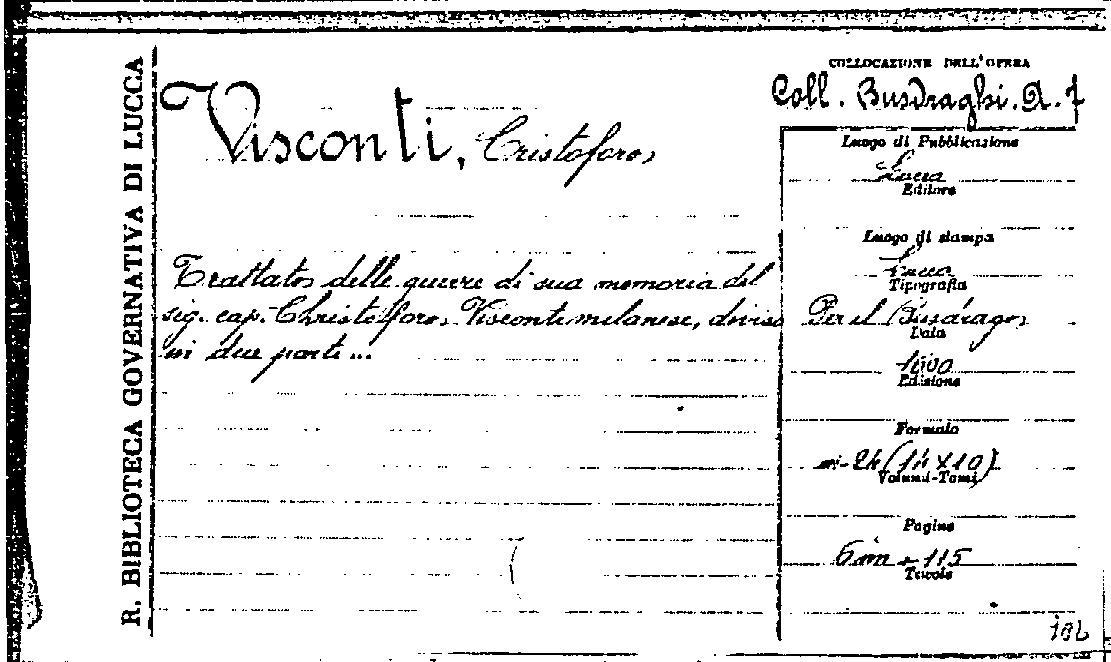 R. BIBLIOTECA GOVERNATIVA DI LUCCA
Visconti, Cristoforo
Trattato delle guerre di sua memoria del
sig. cap. Christofforo Visconti milanese, diviso
in due parti...
COLLOCAZIONE DELL'OPERA
Coll. Busdraghi. A. 7
Luogo di Pubblicazione
Lucca
Editore
Luogo di stampa
Lucca
Tipografia
Per il Busdrago
Data
1600
Edizione
Formato
in-24 (14×10)
Volumi-Tomi
Pagine
6 in + 115
Tavole
102